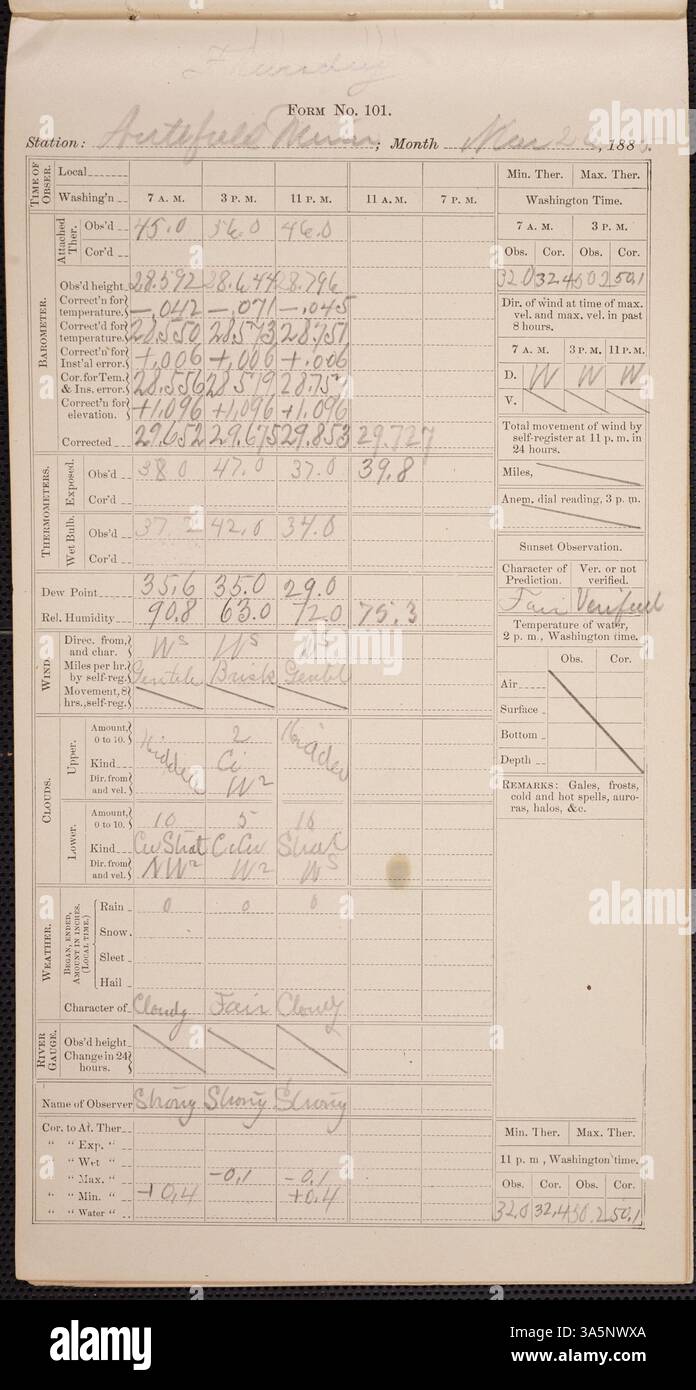 Thursday
FORM No. 101.
Station: Northfield Minn; Month Mar 26, 1885.
TIME OF OBSER.
Local
Washing'n 7 A. M. 3 P. M. 11 P. M. 11 A. M. 7 P. M.
BAROMETER.
Attached Ther.
Obs'd 45.0 56.0 46.0
Cor'd
Obs'd height 28.592 28.644 28.796
Correct'n for temperature. -.042 -.071 -.045
Correct'd for temperature. 28.550 28.573 28.751
Correct'n for Inst'al error. +.006 +.006 +.006
Cor. for Tem. & Ins. error. 28.556 28.579 28.757
Correct'n for elevation. +1.096 +1.096 +1.096
Corrected 29.652 29.675 29.853 29.727
THERMOMETERS.
Exposed.
Obs'd 38.0 47.0 37.0 39.8
Cor'd
Wet Bulb.
Obs'd 37.2 42.0 34.0
Cor'd
Dew Point 35.6 35.0 29.0
Rel. Humidity 90.8 63.0 72.0 75.3
WIND.
Direc. from, and char. W S W S W S
Miles per hr. by self-reg. Gentle Brisk Gentl
Movement, 8 hrs., self-reg.
CLOUDS.
Upper.
Amount, 0 to 10. Hidden 2 Hidden
Kind Ci
Dir. from and vel. W 2
Lower.
Amount, 0 to 10. 10 5 10
Kind Cu Strat CiCu Strat
Dir. from and vel. NW 2 W 2 W S
WEATHER.
BEGAN, ENDED, AMOUNT IN INCHES. (LOCAL TIME.)
Rain 0 0 0
Snow.
Sleet
Hail
Character of Cloudy Fair Cloudy
RIVER GAUGE.
Obs'd height
Change in 24 hours.
Name of Observer Strong Strong Strong
Cor. to At. Ther
" " Exp. "
" " Wet "
" " Max. " -0.1 -0.1
" " Min. " +0.4 +0.4
" " Water "
Min. Ther. Max. Ther.
Washington Time.
7 A. M. 3 P. M.
Obs. Cor. Obs. Cor.
32.0 32.4 50.2 50.1
Dir. of wind at time of max. vel. and max. vel. in past 8 hours.
7 A. M. 3 P. M. 11 P. M.
D. W W W
V.
Total movement of wind by self-register at 11 p. m. in 24 hours.
Miles,
Anem. dial reading, 3 p. m.
Sunset Observation.
Character of Prediction. Ver. or not verified.
Fair Verified
Temperature of water, 2 p. m., Washington time.
Obs. Cor.
Air
Surface
Bottom
Depth
REMARKS: Gales, frosts, cold and hot spells, auroras, halos, &c.
Min. Ther. Max. Ther.
11 p. m , Washington time.
Obs. Cor. Obs. Cor.
32.0 32.4 50.2 50.1
alamy
Image ID: 3A5NWXA
www.alamy.com